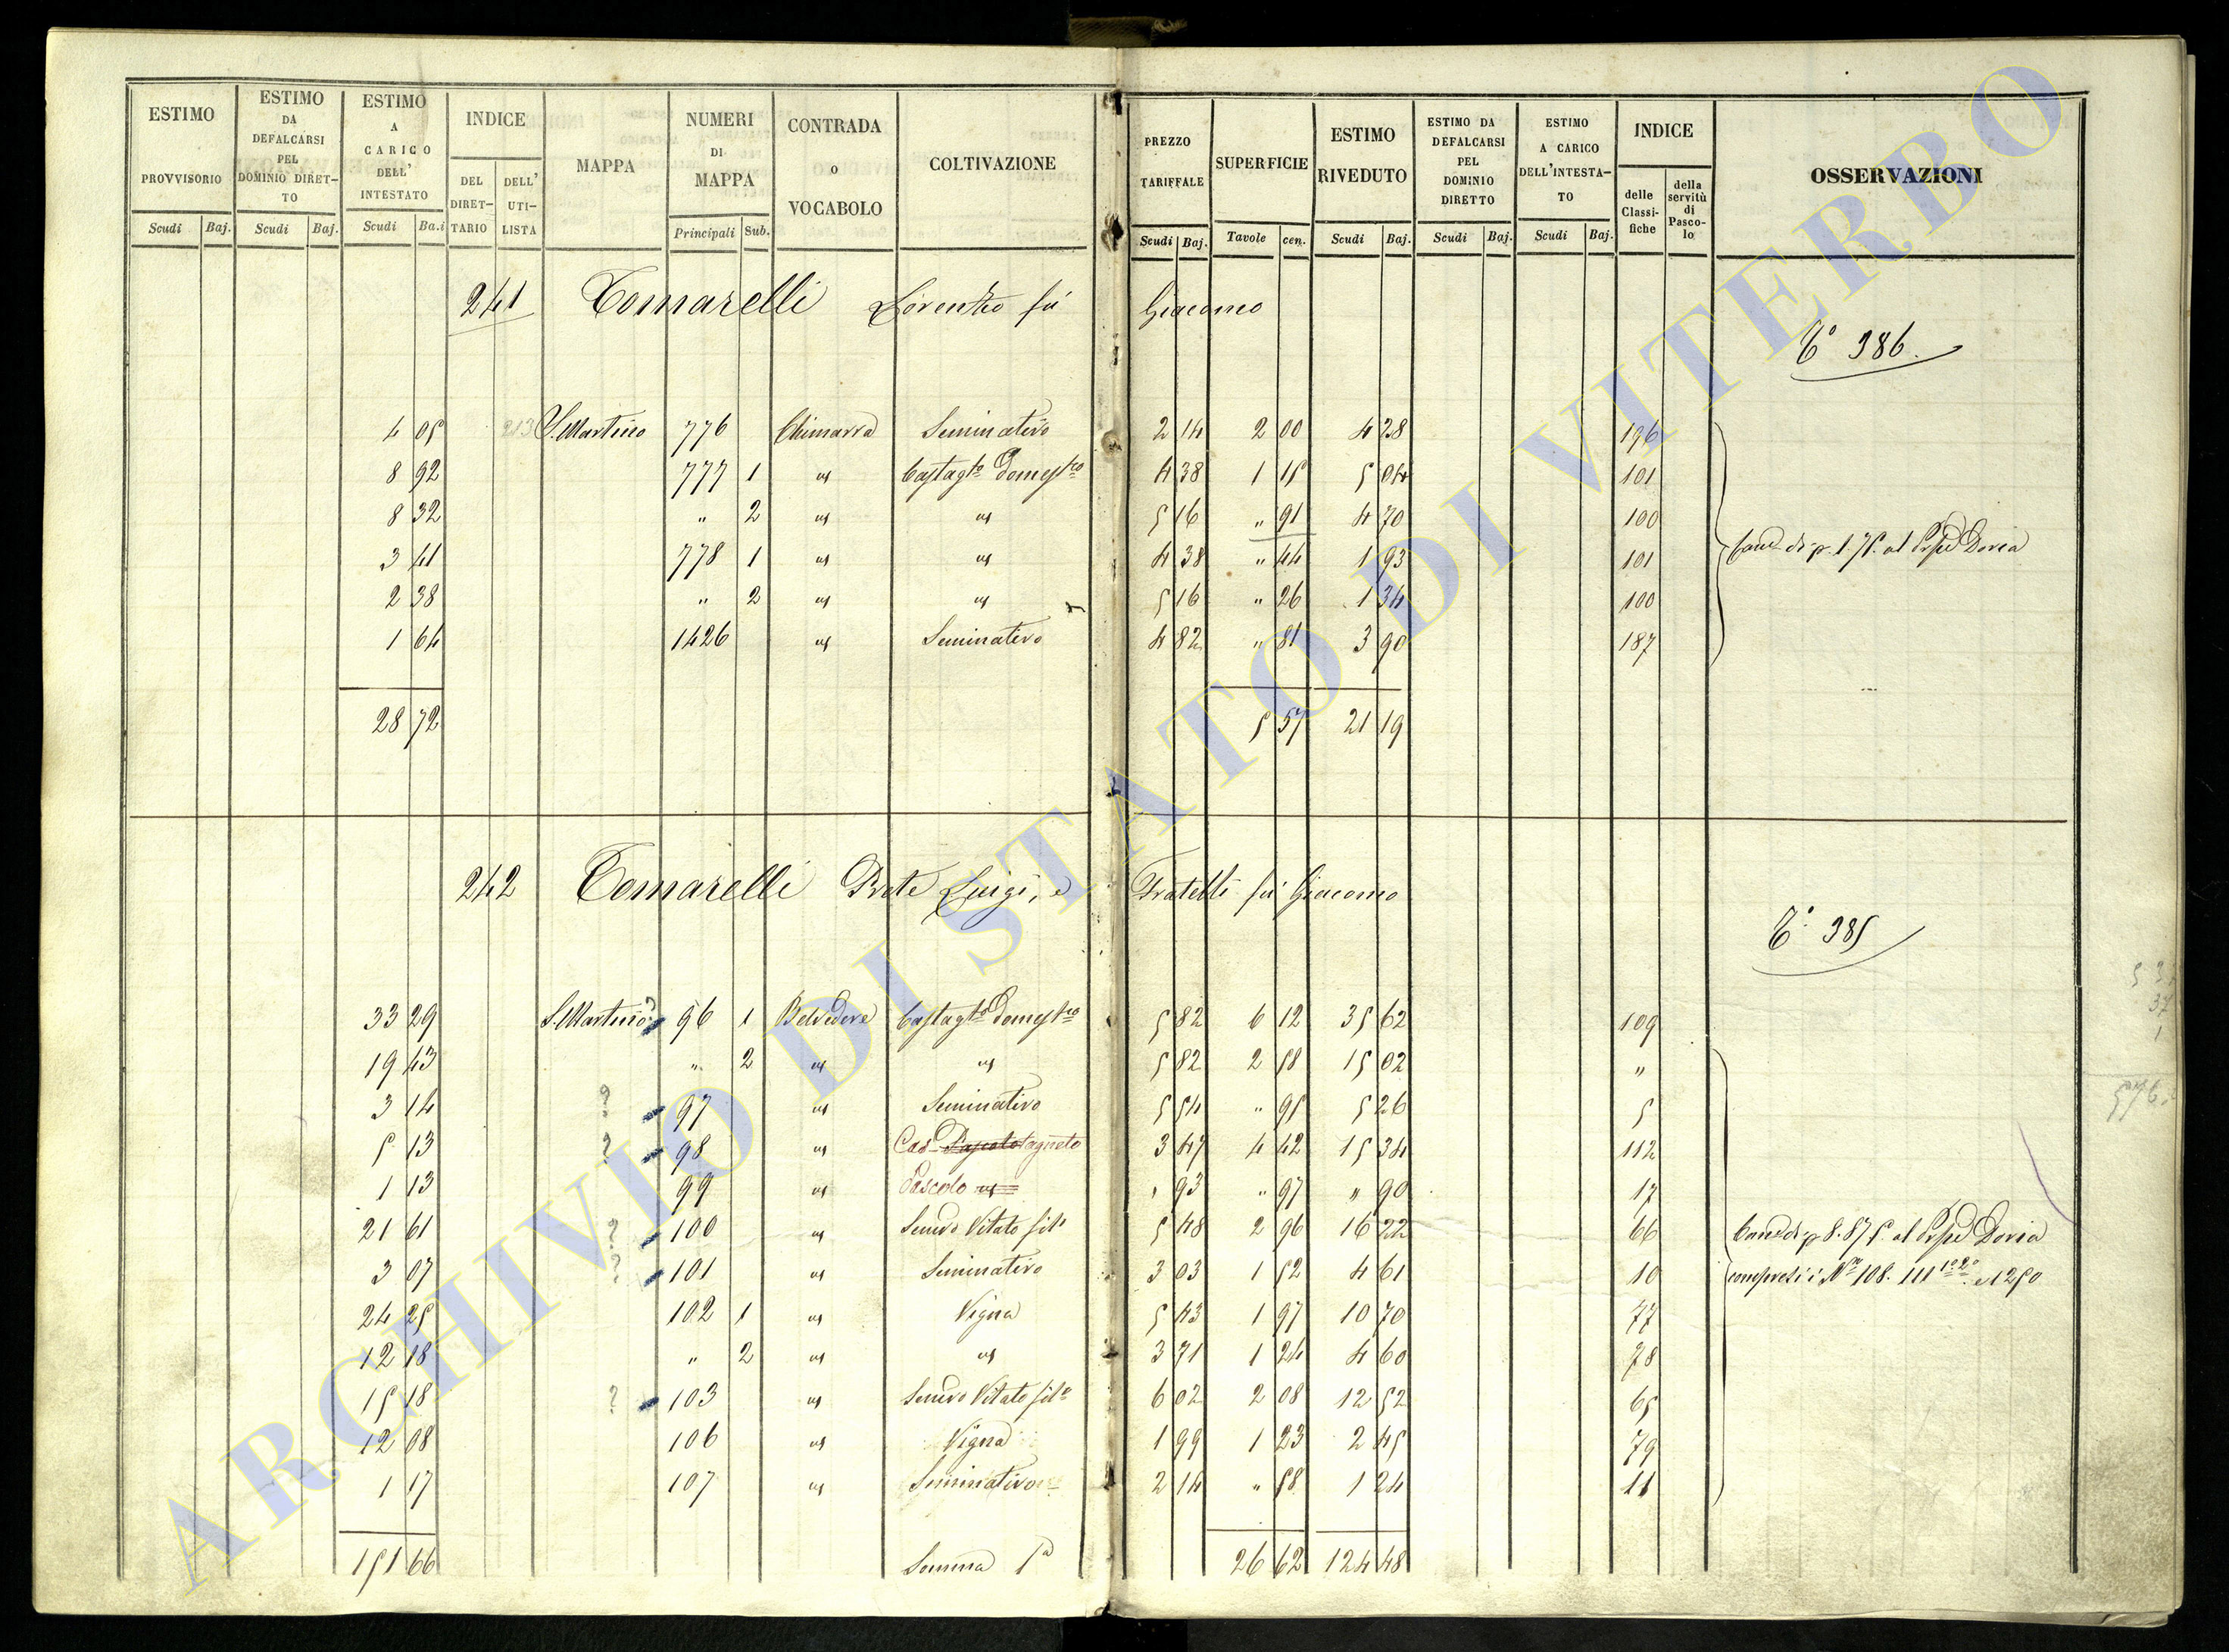 ESTIMO PROVVISORIO Scudi Baj.
ESTIMO DA DEFALCARSI PEL DOMINIO DIRET-TO Scudi Baj.
ESTIMO A CARICO DELL' INTESTATO Scudi Ba.i
INDICE DEL DIRET-TARIO DELL' UTI-LISTA
MAPPA
NUMERI DI MAPPA Principali Sub.
CONTRADA o VOCABOLO
COLTIVAZIONE
PREZZO TARIFFALE Scudi Baj.
SUPERFICIE Tavole cen.
ESTIMO RIVEDUTO Scudi Baj.
ESTIMO DA DEFALCARSI PEL DOMINIO DIRETTO Scudi Baj.
ESTIMO A CARICO DELL'INTESTA-TO Scudi Baj.
INDICE delle Classi-fiche della servitù di Pasco-lo
OSSERVAZIONI
241 Tomarelli Lorenzo fu Giacomo
T.º 386.
4 05 213 S. Martino 776 Chimarra Seminativo 2 14 2 00 4 28 196
8 92 777 1 " Castagto Domestco 4 38 1 15 5 04 101
8 32 " 2 " " 5 16 " 91 4 70 100
3 41 778 1 " " 4 38 " 44 1 93 101
2 38 " 2 " " 5 16 " 26 1 34 100
1 64 1426 " Seminativo 4 82 " 81 3 90 187
al Doria
28 72 5 57 21 19
242 Tomarelli Prete Luigi, e Fratelli fu Giacomo
T.º 385
33 29 S. Martino 96 1 Belvedere Castagto Domestco 5 82 6 12 35 62 109
19 43 " 2 " " 5 82 2 58 15 02 "
3 14 ? 97 " Seminativo 5 54 " 95 5 26 5
5 13 ? 98 " Cas Pascolo tagneto 3 47 4 42 15 34 112
1 13 99 " Pascolo " " 93 " 97 " 90 17
21 61 ? 100 " Semvo Vitato 5 48 2 96 16 22 66
3 07 ? 101 " Seminativo 3 03 1 52 4 61 10
24 25 102 1 " Vigna 5 43 1 97 10 70 77
12 18 " 2 " " 3 71 1 24 4 60 78
15 18 ? 103 " Semvo Vitato 6 02 2 08 12 52 65
12 08 106 " Vigna 1 99 1 23 2 45 79
1 17 107 " Seminativo 2 14 " 58 1 24 11
8.875 al Doria
compresi i Ni 108. 111 1º 2º e 1250
151 66 Somma 1ª 26 62 124 48
576.
ARCHIVIO DI STATO DI VITERBO